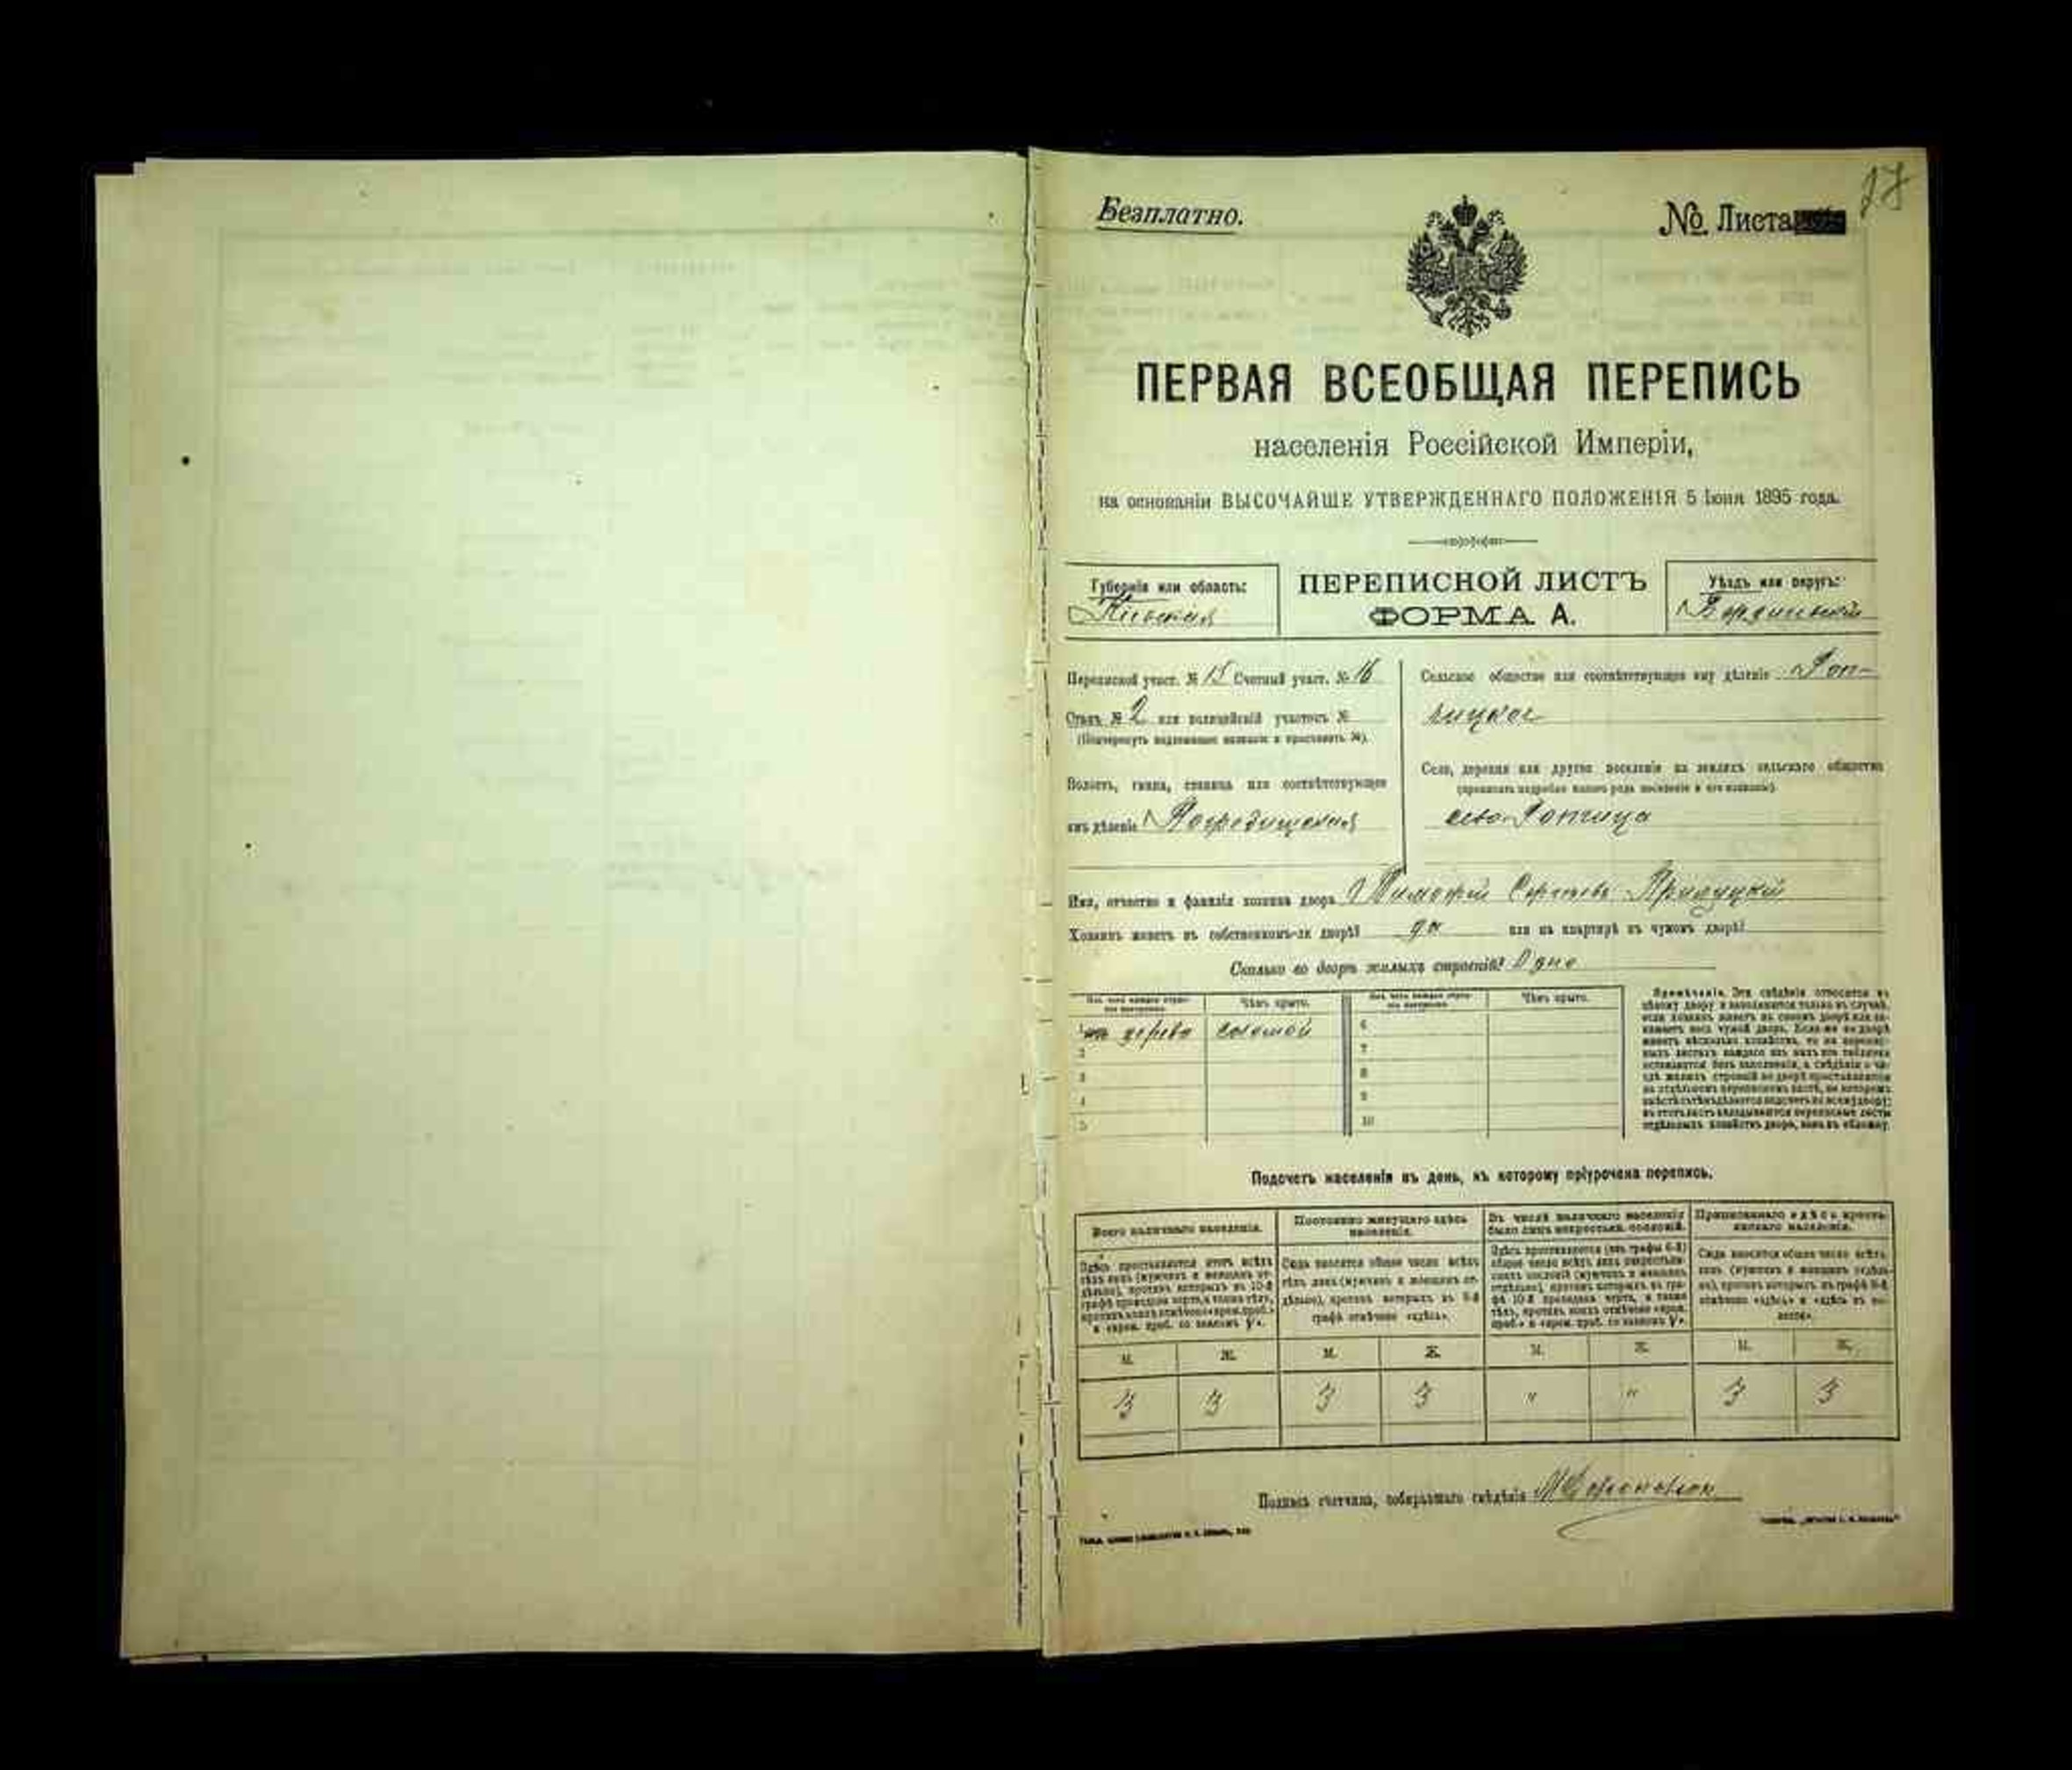 27
Безплатно.
№ Листа
ПЕРВАЯ ВСЕОБЩАЯ ПЕРЕПИСЬ
населенія Россійской Имперіи,
на основаніи ВЫСОЧАЙШЕ УТВЕРЖДЕННАГО ПОЛОЖЕНІЯ 5 Іюня 1895 года.
Губернія или область:
Кіевская
ПЕРЕПИСНОЙ ЛИСТЪ
ФОРМА А.
Уѣздъ или округъ:
Бердичевскій
Переписной участ. № 15 Счетный участ. № 16
Станъ № 2 или полицейскій участокъ №
(Подчеркнуть надлежащее названіе и проставить №).
Волость, гмина, станица или соотвѣтствующее
имъ дѣленіе Погребищская
Сельское общество или соотвѣтствующее ему дѣленіе
Село, деревня или другое поселеніе на земляхъ сельскаго общества
(прописать подробно какого рода поселеніе и его названіе).
село
Имя, отчество и фамилія хозяина двора Тимофій Сергѣевъ Прилуцкій
Хозяинъ живетъ въ собственномъ-ли дворѣ? да или на квартирѣ въ чужомъ дворѣ?
Сколько во дворѣ жилыхъ строеній? Одно
Изъ чего каждое строе-
ніе построено. Чѣмъ крыто. Изъ чего каждое строе-
ніе построено. Чѣмъ крыто.
1 дерева соломой 6
2 7
3 8
4 9
5 10
Примѣчаніе. Эти свѣдѣнія относятся къ
цѣлому двору и заполняются только въ случаѣ,
если хозяинъ живетъ въ своемъ дворѣ или за-
нимаетъ весь чужой дворъ. Если-же во дворѣ
живетъ нѣсколько хозяйствъ, то на перепис-
ныхъ листахъ каждаго изъ нихъ эта табличка
оставляется безъ заполненія, а свѣдѣнія о чи-
слѣ жилыхъ строеній во дворѣ проставляются
на отдѣльномъ переписномъ листѣ, на которомъ
вмѣстѣ съ тѣмъ дѣлается подсчетъ по всему двору;
въ этотъ листъ вкладываются переписные листы
отдѣльныхъ хозяйствъ двора, какъ въ обложку.
Подсчетъ населенія въ день, къ которому пріурочена перепись.
Всего наличнаго населенія.
Здѣсь проставляется итогъ всѣхъ
тѣхъ лицъ (мужчинъ и женщинъ от-
дѣльно), противъ которыхъ въ 10-й
графѣ проведена черта, а также тѣхъ,
противъ коихъ отмѣчено «врем. проб.»
и «врем. проб. со знакомъ V».
Постоянно живущаго здѣсь
населенія.
Сюда вносится общее число всѣхъ
тѣхъ лицъ (мужчинъ и женщинъ от-
дѣльно), противъ которыхъ въ 9-й
графѣ отмѣчено «здѣсь».
Въ числѣ наличнаго населенія
было лицъ некрестьян. сословій.
Здѣсь проставляется (изъ графы 6-й)
общее число всѣхъ лицъ некрестьян-
скихъ сословій (мужчинъ и женщинъ
отдѣльно), противъ которыхъ въ гра-
фѣ 10-й проведена черта, а также
тѣхъ, противъ коихъ отмѣчено «врем.
проб.» и «врем. проб. со знакомъ V».
Приписаннаго здѣсь кресть-
янскаго населенія.
Сюда вносится общее число всѣхъ
лицъ (мужчинъ и женщинъ отдѣль-
но), противъ которыхъ въ графѣ 8-й
отмѣчено «здѣсь» и «здѣсь въ во-
лости».
М. Ж. М. Ж. М. Ж. М. Ж.
3 3 3 3 " " 3 3
Подпись счетчика, собиравшаго свѣдѣнія